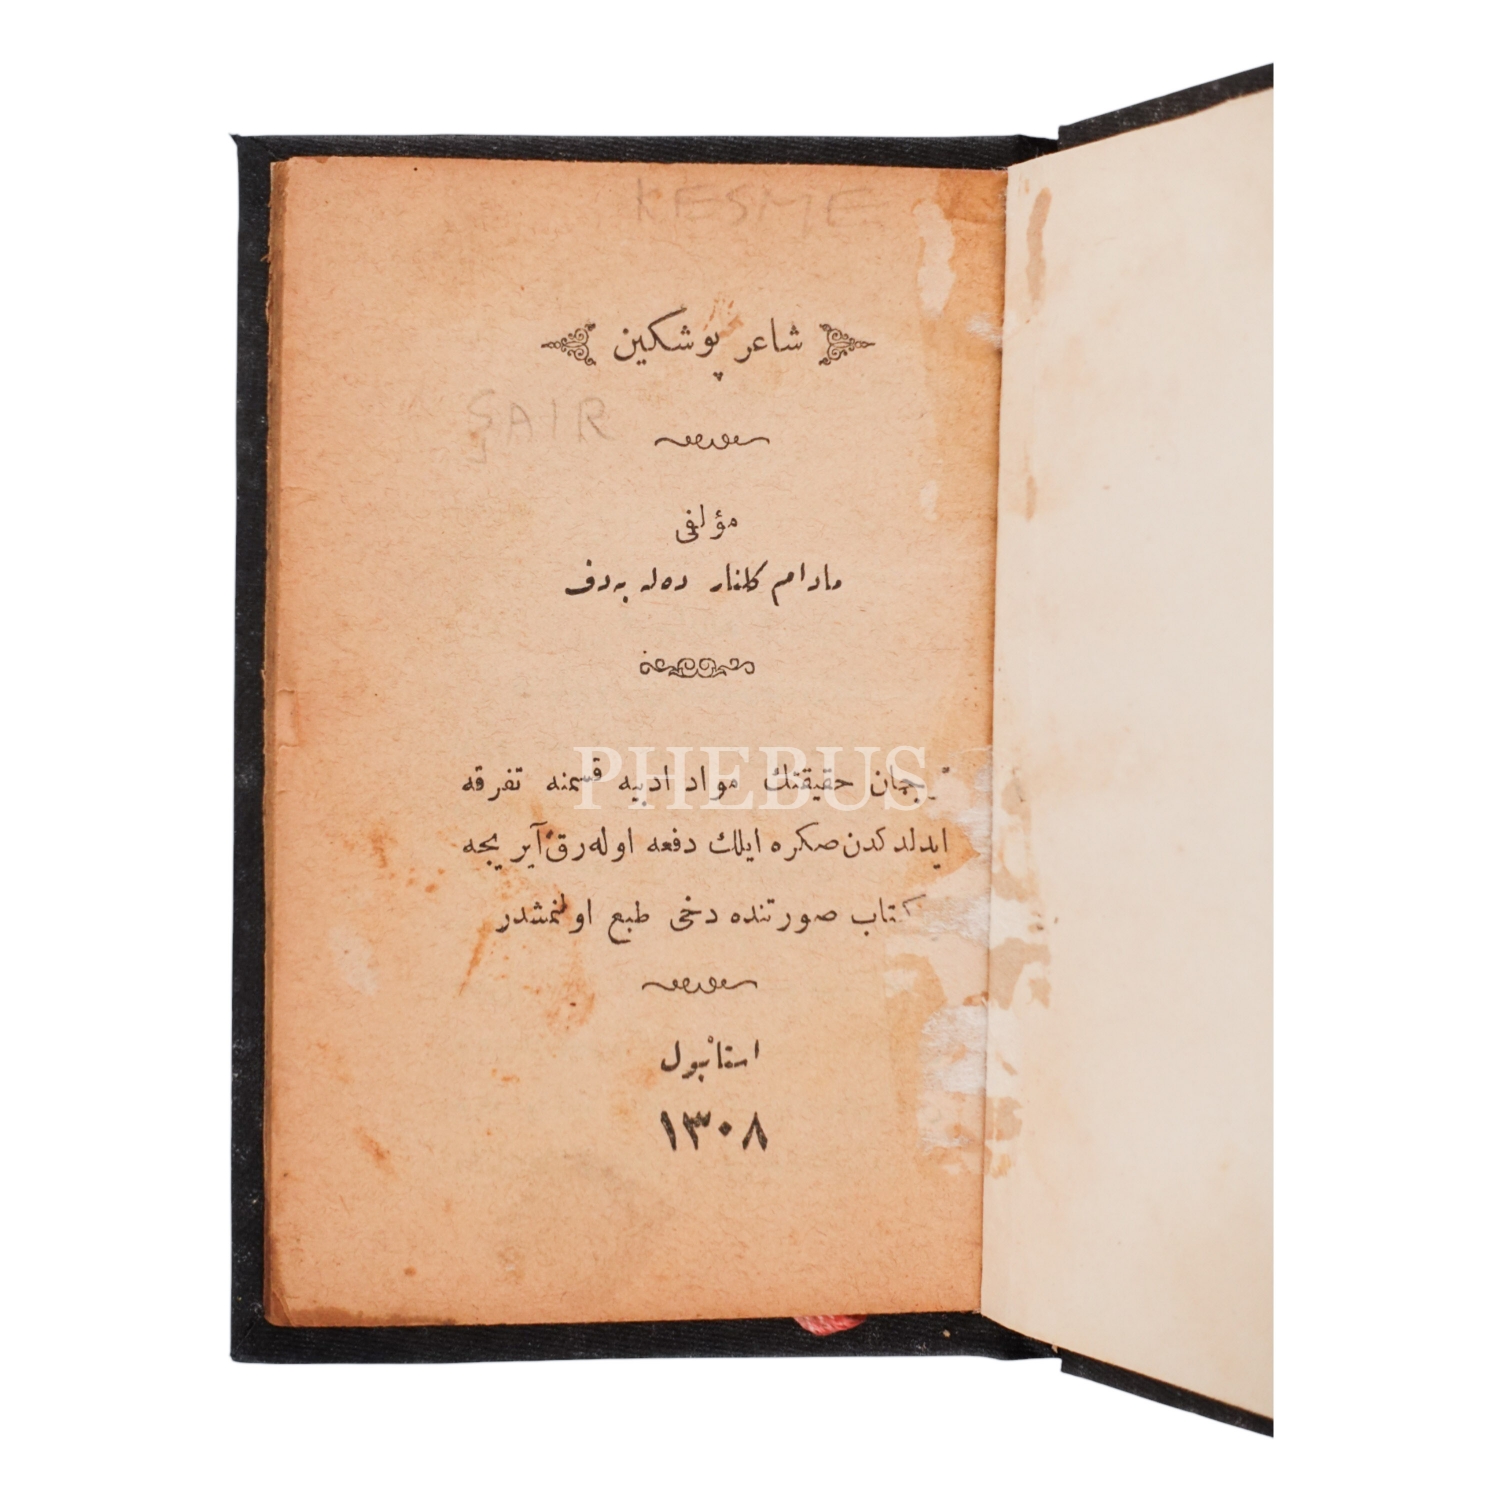 KESME
شاعر پوشكين
ŞAIR
مؤلفى
مادام كلنار ده‌له‌به‌دف
حقيقتك مواد ادبيه قسمنه تفرقه
ايدلدكدن صكره ايلك دفعه اوله‌رق آيريجه
كتاب صورتنده دخى طبع اولنمشدر
استانبول
١٣٠٨
PHEBUS